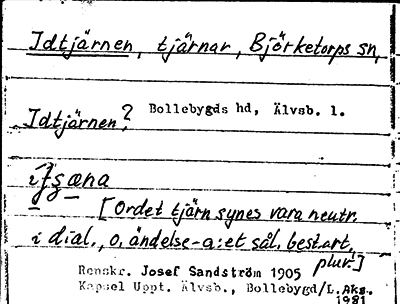 Idtjärnen, tjärnar, Björketorps sn,
Bollebygds hd, Älvsb. l.
Idtjärnen?
[Ordet tjärn synes vara neutr.
i dial., o. ändelse -a: et sål. best. art.
plur.]
Renskr. Josef Sandström 1905
Kapsel Uppt. Älvsb., Bollebygd/L.Aks.
1981